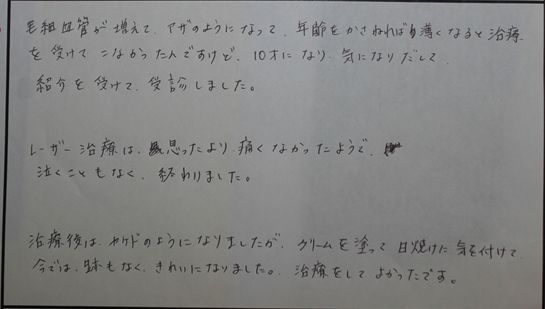 毛細血管が増えて、アザのようになって、年齢をかさねれば薄くなると治療
を受けてこなかったんですけど、10才になり、気になりだして
紹介を受けて、受診しました。
レーザー治療は、思ったより痛くなかったようで、
泣くこともなく、終わりました。
治療後は、ヤケドのようになりましたが、クリームを塗って日焼けに気を付けて、
今では、跡もなく、きれいになりました。治療をしてよかったです。